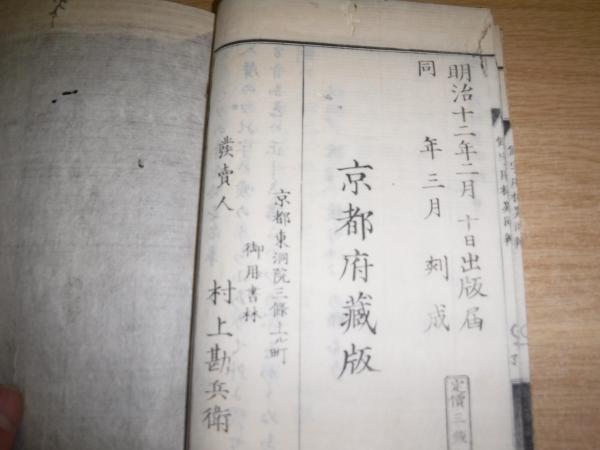 明治十二年二月十日出版届
同 年三月 刻成
京都府藏版
京都東洞院三條上ル町
御用書林
發賣人 村上勘兵衛
定價三錢